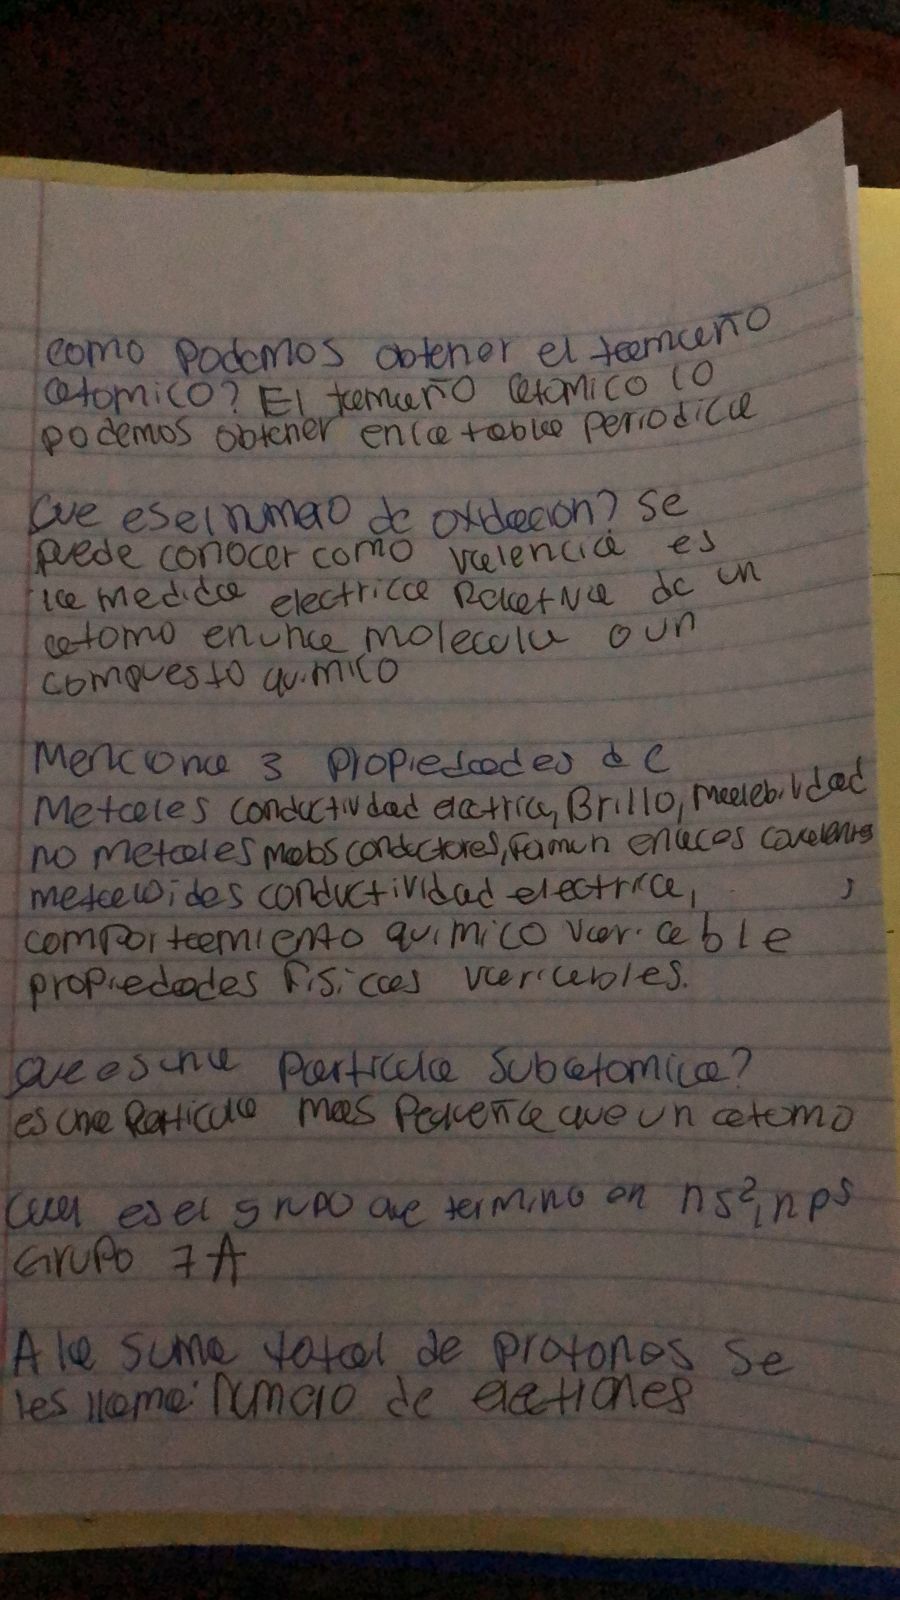 como podemos obtener el tamaño
atomico? El tamaño atomico lo
podemos obtener en la tabla periodica
Que es el numero de oxidacion? se
puede conocer como valencia es
la medida electrica de un
atomo en una molecula o un
compuesto quimico
Menciona 3 propiedades de
Metales conductividad electrica, Brillo, Maleabilidad
no metales malos conductores, forman enlaces covalentes
metaloides conductividad electrica,
comportamiento quimico variable
propiedades fisicas variables.
Que es una particula subatomica?
es una particula mas pequeña que un atomo
Cual es el grupo que termina en ns², np⁵
Grupo 7A
A la suma total de protones se
les llama: numero de electrones